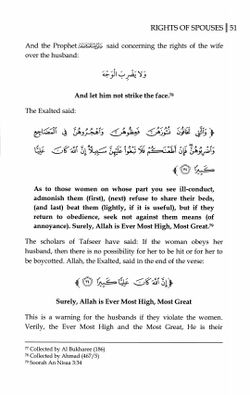 RIGHTS OF SPOUSES | 51
And the Prophet ﷺ said concerning the rights of the wife
over the husband:
وَلَا يَضْرِبِ الْوَجْهَ
And let him not strike the face.⁷⁸
The Exalted said:
﴿ وَالَّتِي تَخَافُونَ نُشُوزَهُنَّ فَعِظُوهُنَّ وَاهْجُرُوهُنَّ فِي الْمَضَاجِعِ
وَاضْرِبُوهُنَّ فَإِنْ أَطَعْنَكُمْ فَلَا تَبْغُوا عَلَيْهِنَّ سَبِيلًا إِنَّ اللَّهَ كَانَ عَلِيًّا
كَبِيرًا ﴾
As to those women on whose part you see ill-conduct,
admonish them (first), (next) refuse to share their beds,
(and last) beat them (lightly, if it is useful), but if they
return to obedience, seek not against them means (of
annoyance). Surely, Allah is Ever Most High, Most Great.⁷⁹
The scholars of Tafseer have said: If the woman obeys her
husband, then there is no possibility for her to be hit or for her to
be boycotted. Allah, the Exalted, said in the end of the verse:
﴿ إِنَّ اللَّهَ كَانَ عَلِيًّا كَبِيرًا ﴾
Surely, Allah is Ever Most High, Most Great
This is a warning for the husbands if they violate the women.
Verily, the Ever Most High and the Most Great, He is their
⁷⁷ Collected by Al Bukharee (186)
⁷⁸ Collected by Ahmad (467/5)
⁷⁹ Soorah An Nisaa 3:34